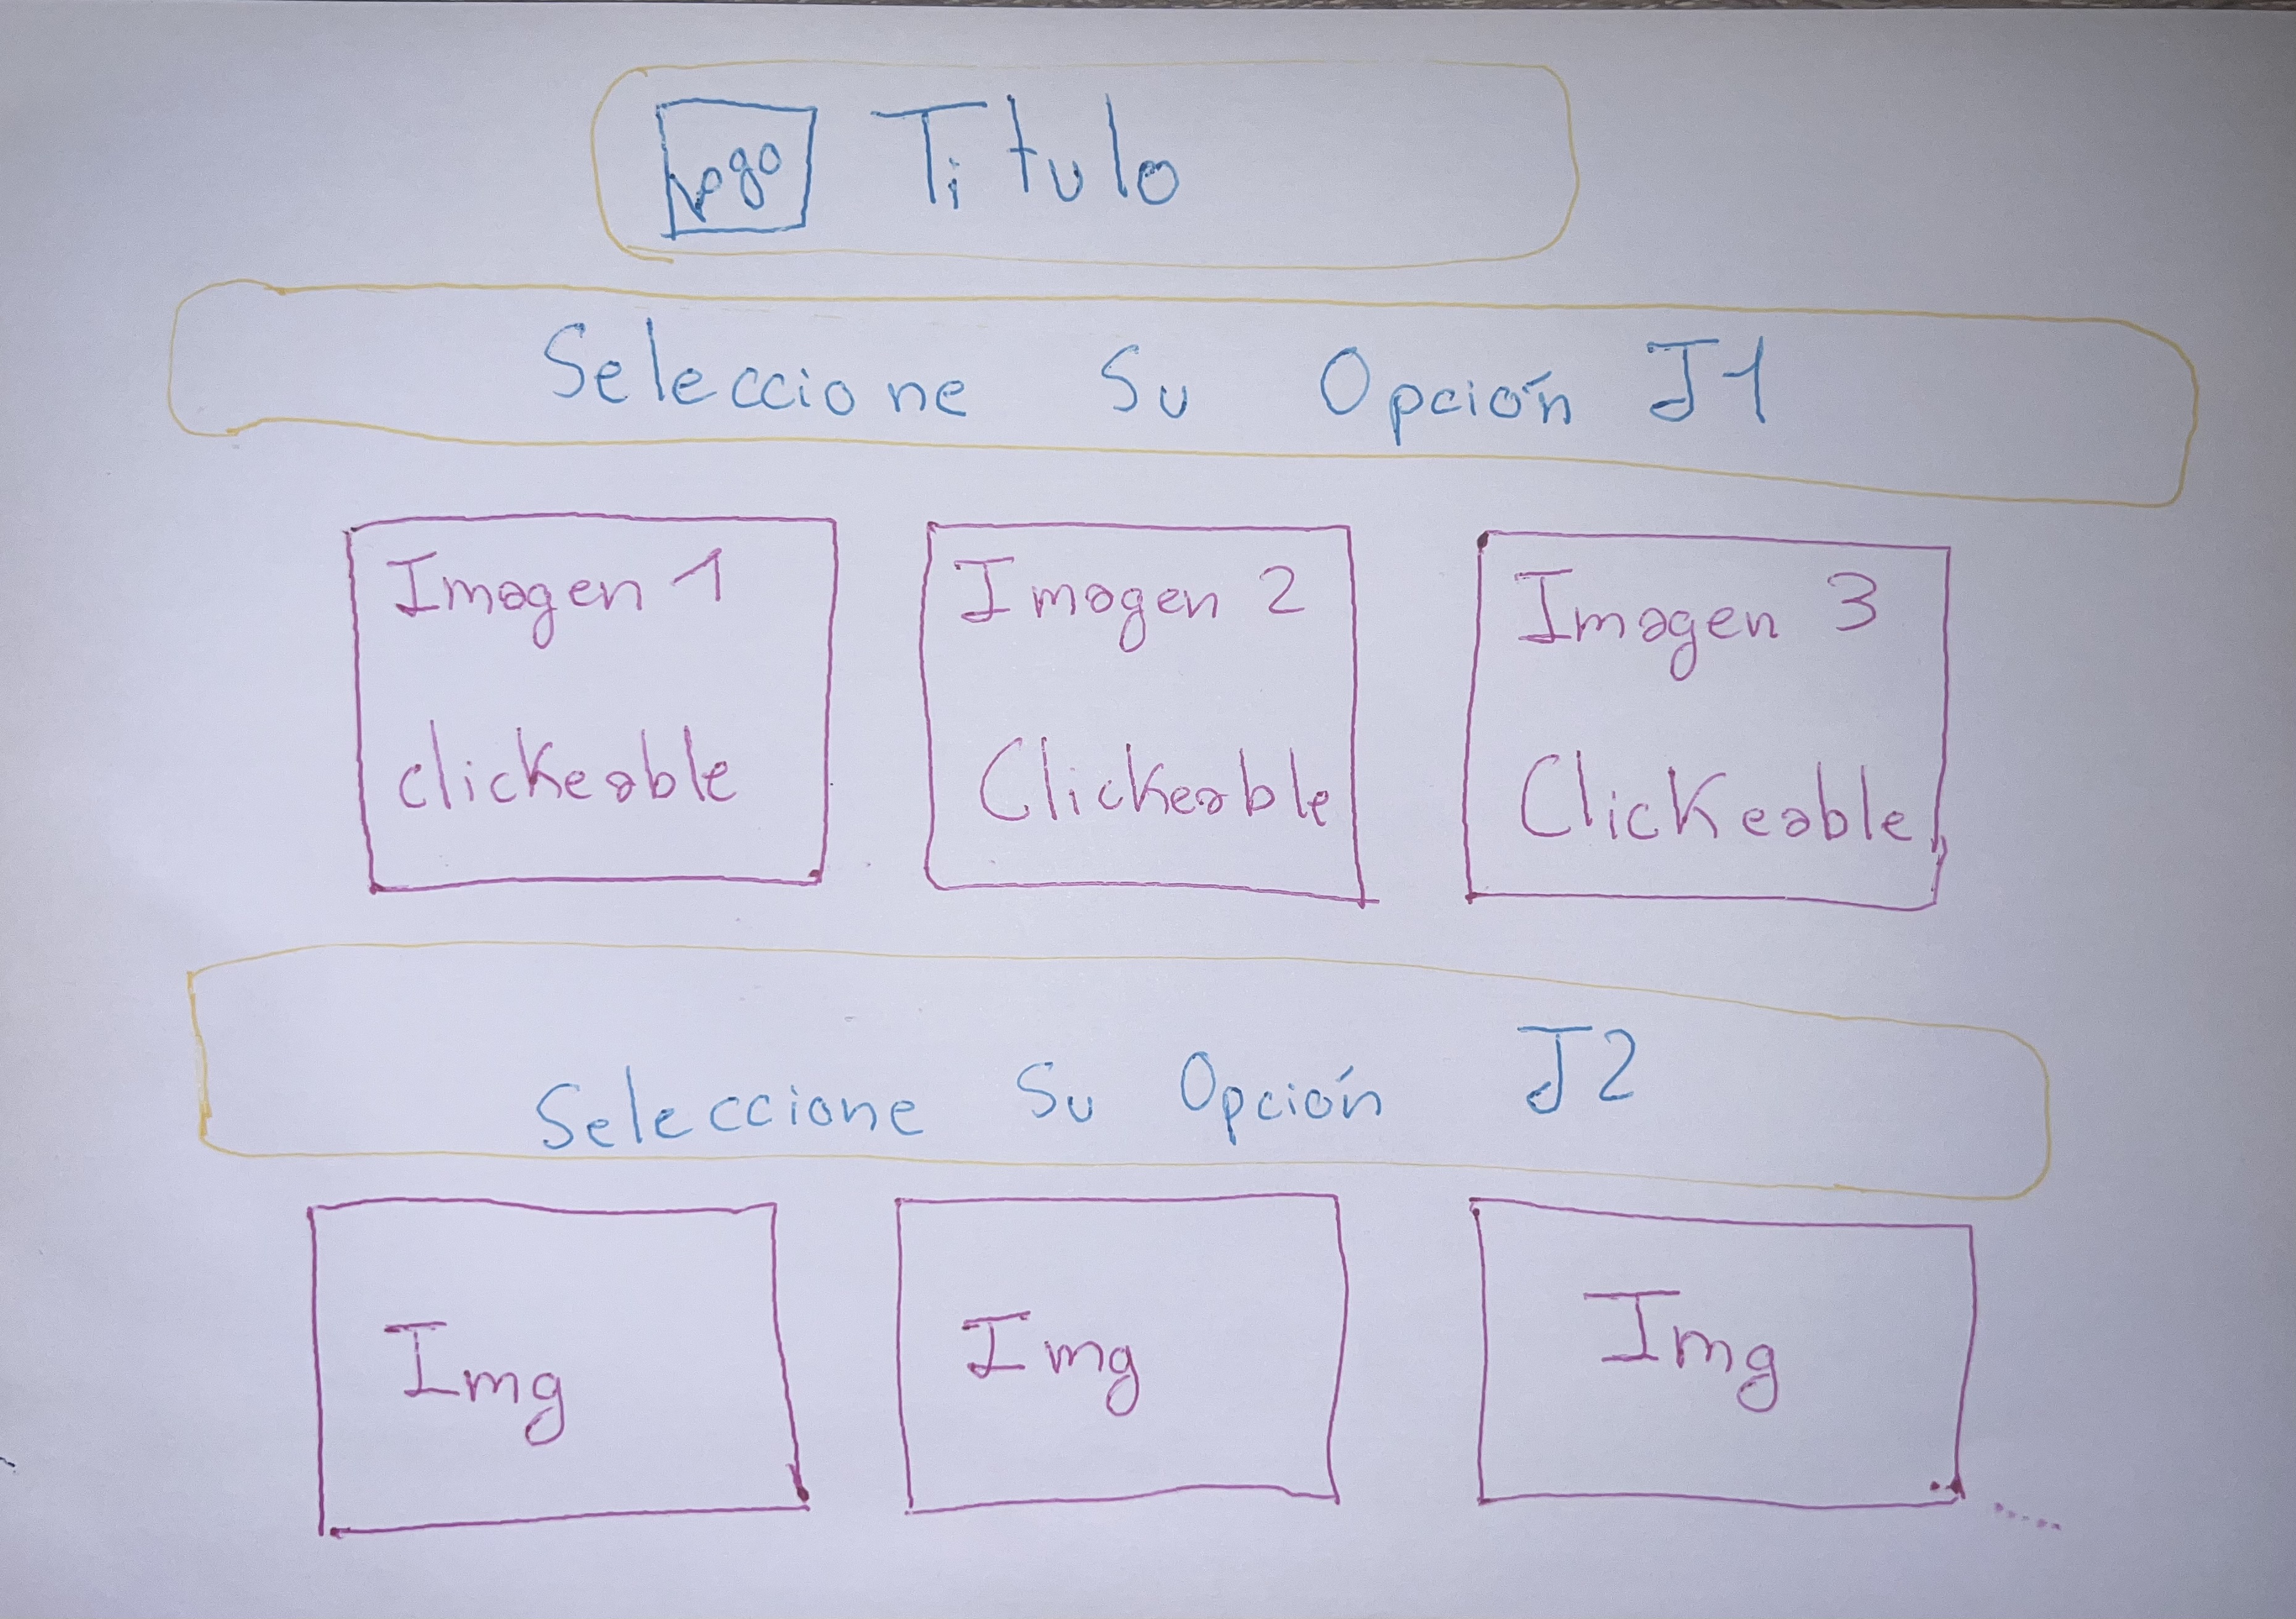 Logo Titulo
Seleccione Su Opción J1
Imagen 1 Imagen 2 Imagen 3
clickeable Clickeable Clickeable
Seleccione Su Opción J2
Img Img Img